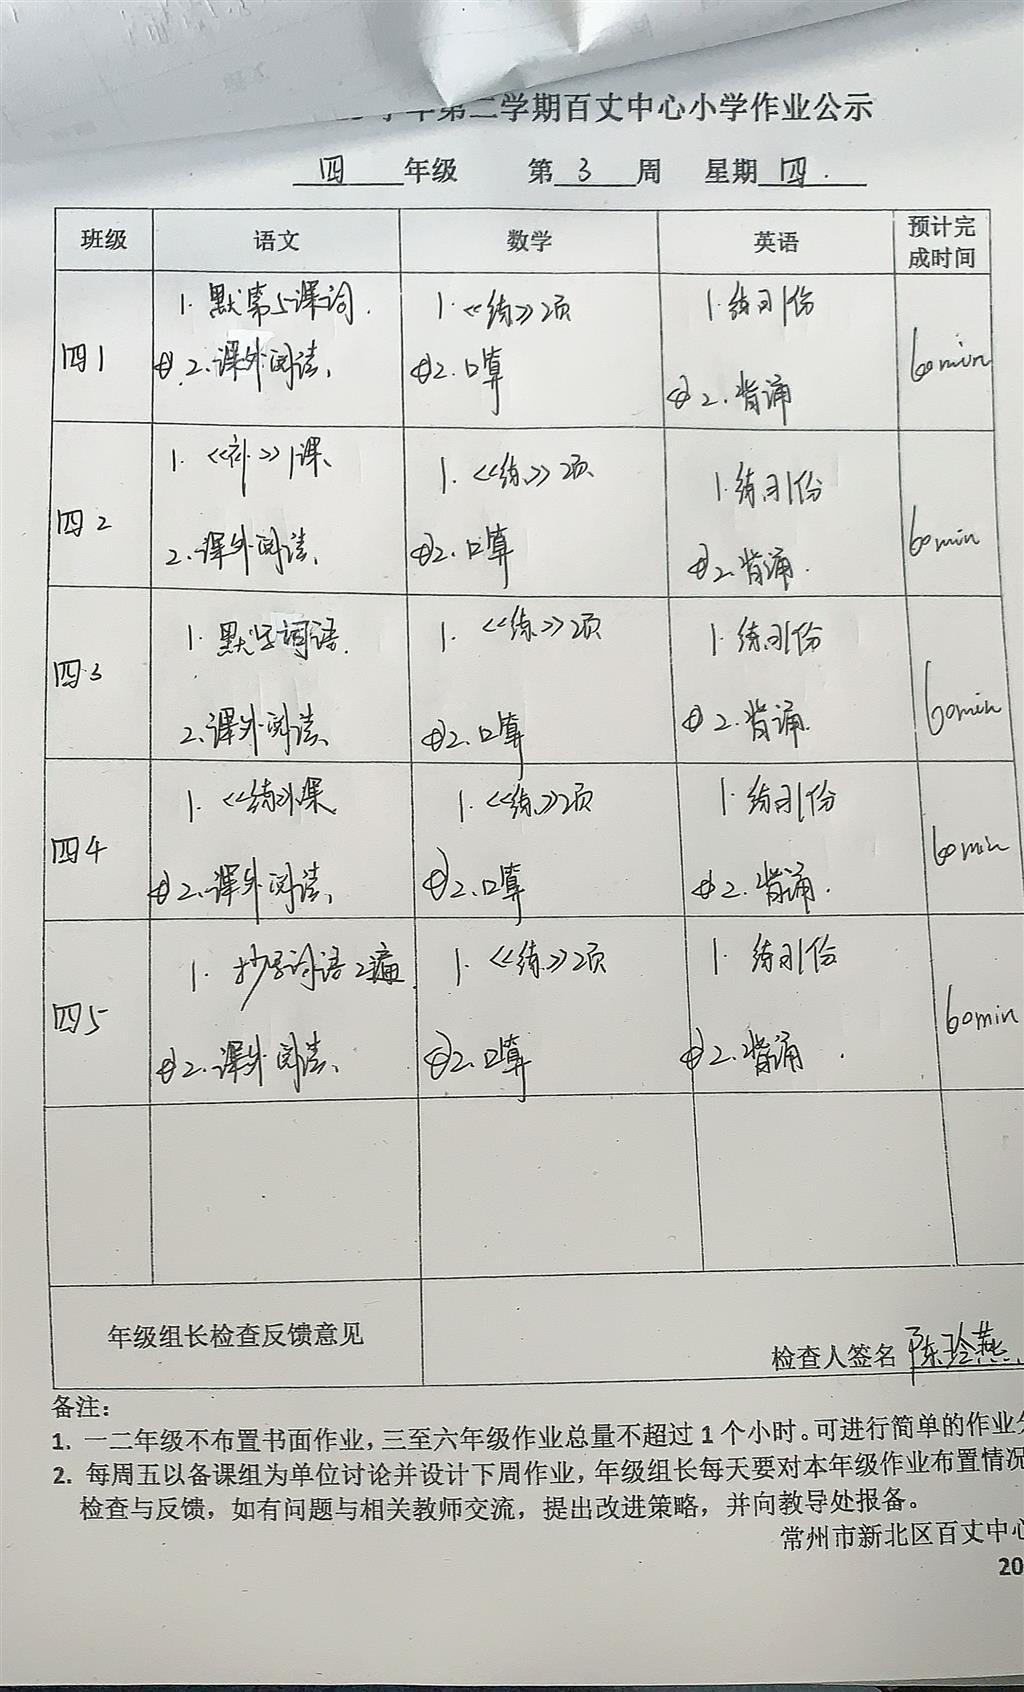 学年第二学期百丈中心小学作业公示
四 年级 第 3 周 星期 四
班级 语文 数学 英语 预计完成时间
四1
1. 默第5课词.
⊕2.课外阅读、
1.《练》2页
⊕2.口算
1.练习1份
⊕2.背诵
60min
四2
1.《补》1课、
2.课外阅读、
1.《练》2页
⊕2.口算
1.练习1份
⊕2.背诵.
60min
四3
1. 默写词语.
2.课外阅读、
1.《练》2页
⊕2.口算
1.练习1份
⊕2.背诵.
60min
四4
1.《练》1课
⊕2.课外阅读、
1.《练》2页
⊕2.口算
1.练习1份
⊕2.背诵.
60min
四5
1. 抄写词语2遍
⊕2.课外阅读、
1.《练》2页
⊕2.口算
1.练习1份
⊕2.背诵.
60min
年级组长检查反馈意见
检查人签名 陈玲燕
备注：
1. 一二年级不布置书面作业，三至六年级作业总量不超过 1 个小时。可进行简单的作业
2. 每周五以备课组为单位讨论并设计下周作业，年级组长每天要对本年级作业布置情况
检查与反馈，如有问题与相关教师交流，提出改进策略，并向教导处报备。
常州市新北区百丈中心
20